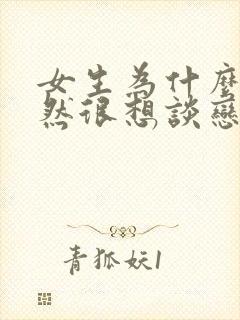 女生為什麼
然很想談戀
青狐妖1